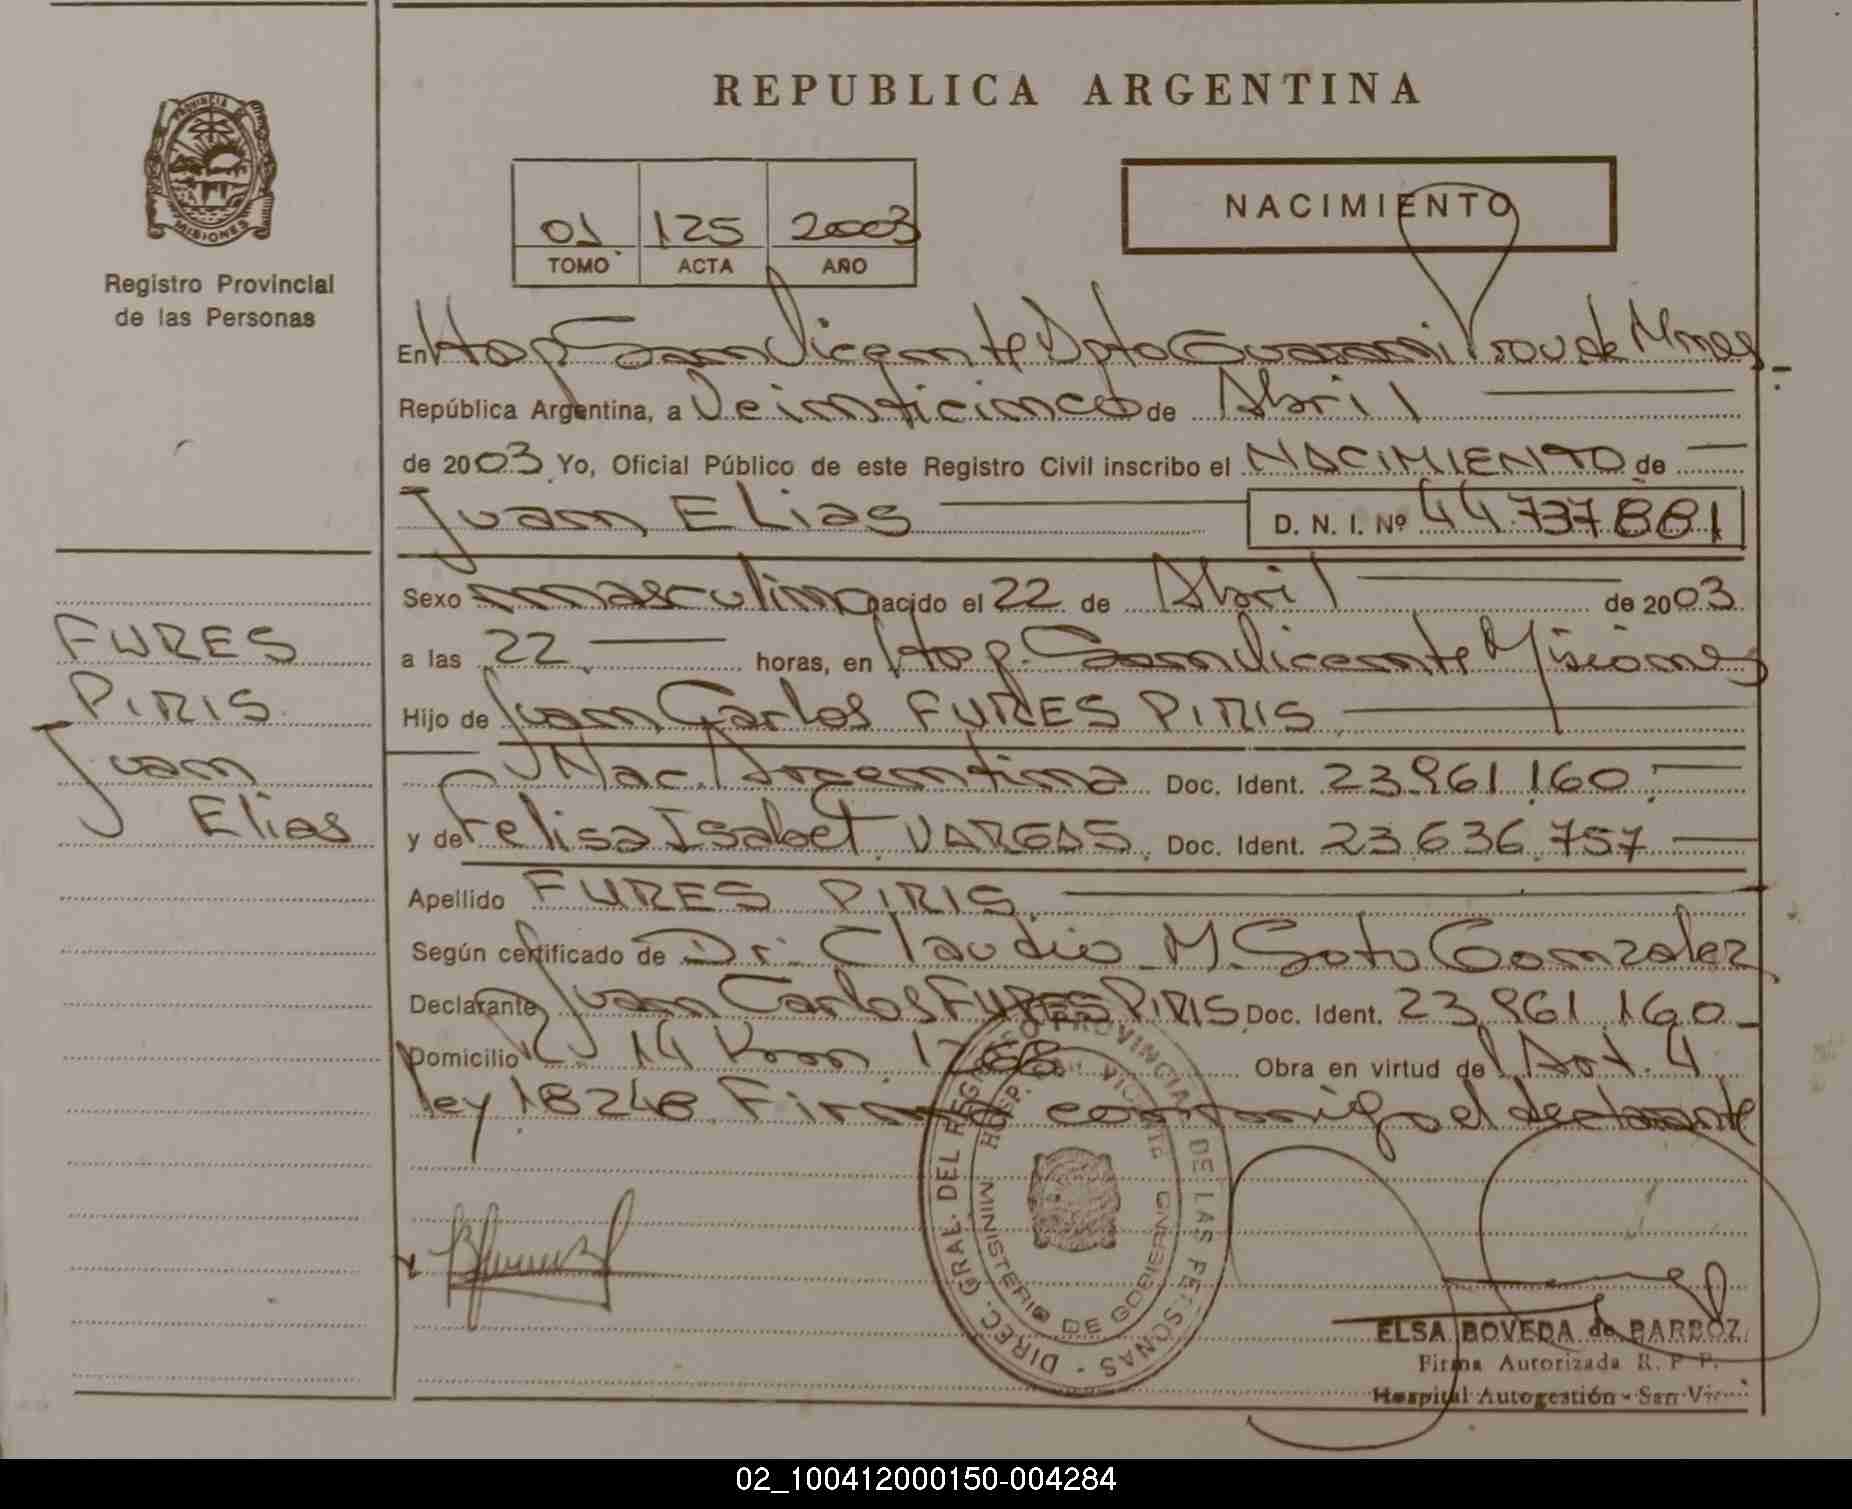 PROVINCIA
MISIONES
Registro Provincial
de las Personas
FURES
PIRIS
Juan
Elias
REPUBLICA ARGENTINA
01 125 2003
TOMO ACTA AÑO
NACIMIENTO
En Hosp. San Vicente Dpto Guarani Prov de Mnes
República Argentina, a Veinticinco de Abril
de 2003 Yo, Oficial Público de este Registro Civil inscribo el NACIMIENTO de
Juan Elias D. N. I. Nº 44.737.881
Sexo masculino nacido el 22 de Abril de 2003
a las 22 horas, en Hosp. San Vicente Misiones
Hijo de Juan Carlos FURES PIRIS
Nac. Argentina Doc. Ident. 23.961.160.
y de Felisa Isabel VARGAS Doc. Ident. 23.636.757
Apellido FURES PIRIS
Según certificado de Dr. Claudio M. Soto Gonzalez
Declarante Juan Carlos FURES PIRIS Doc. Ident. 23.961.160
Domicilio 14 Km. Obra en virtud de Art. 4
ley 18248 Firma conmigo el declarante
DIREC. GRAL. DEL REGISTRO PROVINCIAL DE LAS PERSONAS
HOSP. VICENTE
MINISTERIO DE GOBIERNO
ELSA BOVEDA de BARBOZ
Firma Autorizada R. P. P.
Hospital Autogestión - San Vic
02_100412000150-004284